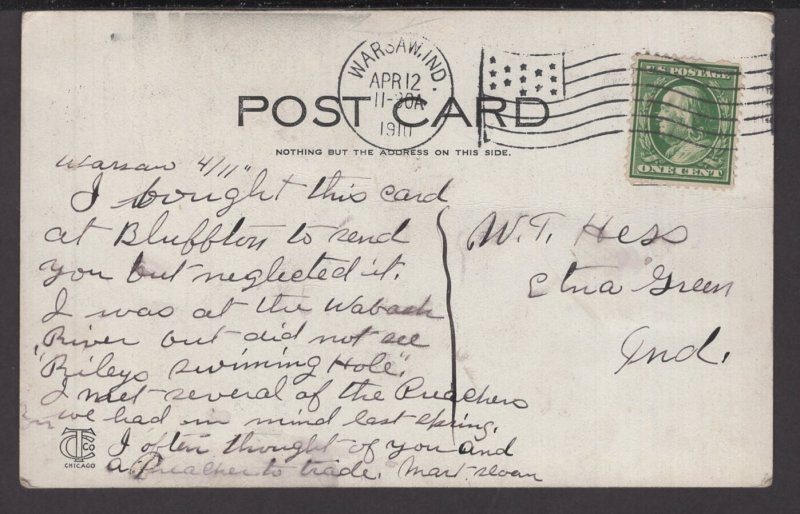 WARSAW, IND.
APR 12
11-30A
1910
U.S. POSTAGE
ONE CENT
POST CARD
NOTHING BUT THE ADDRESS ON THIS SIDE.
Warsaw 4/11"
I bought this card
at Bluffton to send
you but neglected it.
I was at the Wabash
River but did not see
"Rileys swiming Hole".
I met several of the Preachers
we had in mind last spring.
I often thought of you and
a Preacher to trade. Mart Sloan
W. T. Hess
Etna Green
Ind.
CTCo
CHICAGO